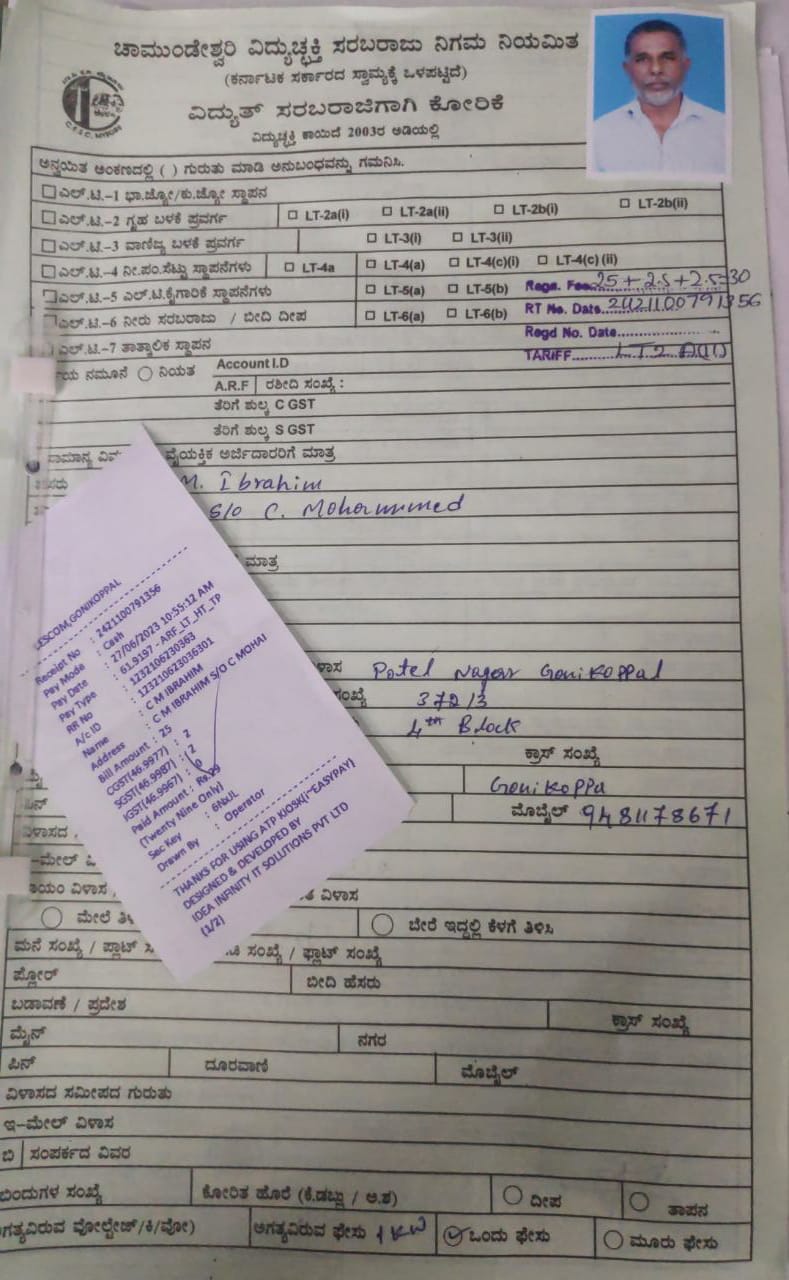 ಚಾಮುಂಡೇಶ್ವರಿ ವಿದ್ಯುಚ್ಛಕ್ತಿ ಸರಬರಾಜು ನಿಗಮ ನಿಯಮಿತ
(ಕರ್ನಾಟಕ ಸರ್ಕಾರದ ಸ್ವಾಮ್ಯಕ್ಕೆ ಒಳಪಟ್ಟಿದೆ)
ವಿದ್ಯುತ್ ಸರಬರಾಜಿಗಾಗಿ ಕೋರಿಕೆ
ವಿದ್ಯುಚ್ಛಕ್ತಿ ಕಾಯಿದೆ 2003ರ ಅಡಿಯಲ್ಲಿ
ಅನ್ವಯಿತ ಅಂಕಣದಲ್ಲಿ ( ) ಗುರುತು ಮಾಡಿ ಅನುಬಂಧವನ್ನು ಗಮನಿಸಿ.
ಎಲ್.ಟಿ.-1 ಭಾ.ಜ್ಯೋ/ಕು.ಜ್ಯೋ ಸ್ಥಾಪನ
ಎಲ್.ಟಿ.-2 ಗೃಹ ಬಳಕೆ ಪ್ರವರ್ಗ LT-2a(i) LT-2a(ii) LT-2b(i) LT-2b(ii)
ಎಲ್.ಟಿ.-3 ವಾಣಿಜ್ಯ ಬಳಕೆ ಪ್ರವರ್ಗ LT-3(i) LT-3(ii)
ಎಲ್.ಟಿ.-4 ನೀ.ಪಂ.ಸೆಟ್ಟು ಸ್ಥಾಪನೆಗಳು LT-4a LT-4(a) LT-4(c)(i) LT-4(c)(ii)
ಎಲ್.ಟಿ.-5 ಎಲ್.ಟಿ.ಕೈಗಾರಿಕೆ ಸ್ಥಾಪನೆಗಳು LT-5(a) LT-5(b) Regn. Fee 25+2.5+2.5=30
ಎಲ್.ಟಿ.-6 ನೀರು ಸರಬರಾಜು / ಬೀದಿ ದೀಪ LT-6(a) LT-6(b) RT No. Date 2421100791356
ಎಲ್.ಟಿ.-7 ತಾತ್ಕಾಲಿಕ ಸ್ಥಾಪನ Regd No. Date
TARIFF LT2 A(II)
ನಮೂನೆ ನಿಯತ Account I.D
A.R.F ರಶೀದಿ ಸಂಖ್ಯೆ :
ತೆರಿಗೆ ಶುಲ್ಕ C GST
ತೆರಿಗೆ ಶುಲ್ಕ S GST
ವೈಯಕ್ತಿಕ ಅರ್ಜಿದಾರರಿಗೆ ಮಾತ್ರ
M. Ibrahim
S/o C. Mohammed
ಮಾತ್ರ
CESCOM,GONIKOPPAL
Receipt No : 2421100791356
Pay Mode : Cash
Pay Date : 27/06/2023 10:55:12 AM
Pay Type : 61.9197 - ARF_LT_HT_TP
RR No : 1232106230363
A/c ID : 123210623036301
Name : C M IBRAHIM
Address : C M IBRAHIM S/O C MOHAI
Bill Amount : 25
CGST(46.9977) : 2
SGST(46.9987) : 2
IGST(46.9967) : 0
Paid Amount : Rs.29
(Twenty Nine Only)
Sec Key : 6NbUL
Drawn By : Operator
THANKS FOR USING ATP KIOSK(i-EASYPAY)
DESIGNED & DEVELOPED BY
IDEA INFINITY IT SOLUTIONS PVT LTD
(1/2)
Patel Nagar Gonikoppal
ಸಂಖ್ಯೆ 372/3
4th Block
ಕ್ರಾಸ್ ಸಂಖ್ಯೆ
Gonikoppa
ಮೊಬೈಲ್ 9481178671
ವಿಳಾಸ
ಮೇಲೆ ಬೇರೆ ಇದ್ದಲ್ಲಿ ಕೆಳಗೆ ತಿಳಿಸಿ
ಮನೆ ಸಂಖ್ಯೆ / ಪ್ಲಾಟ್ ಸಂಖ್ಯೆ / ಫ್ಲಾಟ್ ಸಂಖ್ಯೆ
ಪ್ಲೋರ್ ಬೀದಿ ಹೆಸರು
ಬಡಾವಣೆ / ಪ್ರದೇಶ ಕ್ರಾಸ್ ಸಂಖ್ಯೆ
ಮೈನ್ ನಗರ
ಪಿನ್ ದೂರವಾಣಿ ಮೊಬೈಲ್
ವಿಳಾಸದ ಸಮೀಪದ ಗುರುತು
ಇ-ಮೇಲ್ ವಿಳಾಸ
ಬಿ ಸಂಪರ್ಕದ ವಿವರ
ಬಿಂದುಗಳ ಸಂಖ್ಯೆ ಕೋರಿತ ಹೊರೆ (ಕಿ.ಡಬ್ಲು / ಅ.ಶ) ದೀಪ ತಾಪನ
ಅಗತ್ಯವಿರುವ ವೋಲ್ಟೇಜ್/ಕಿ/ವೋ) ಅಗತ್ಯವಿರುವ ಫೇಸು 1 KW ಒಂದು ಫೇಸು ಮೂರು ಫೇಸು